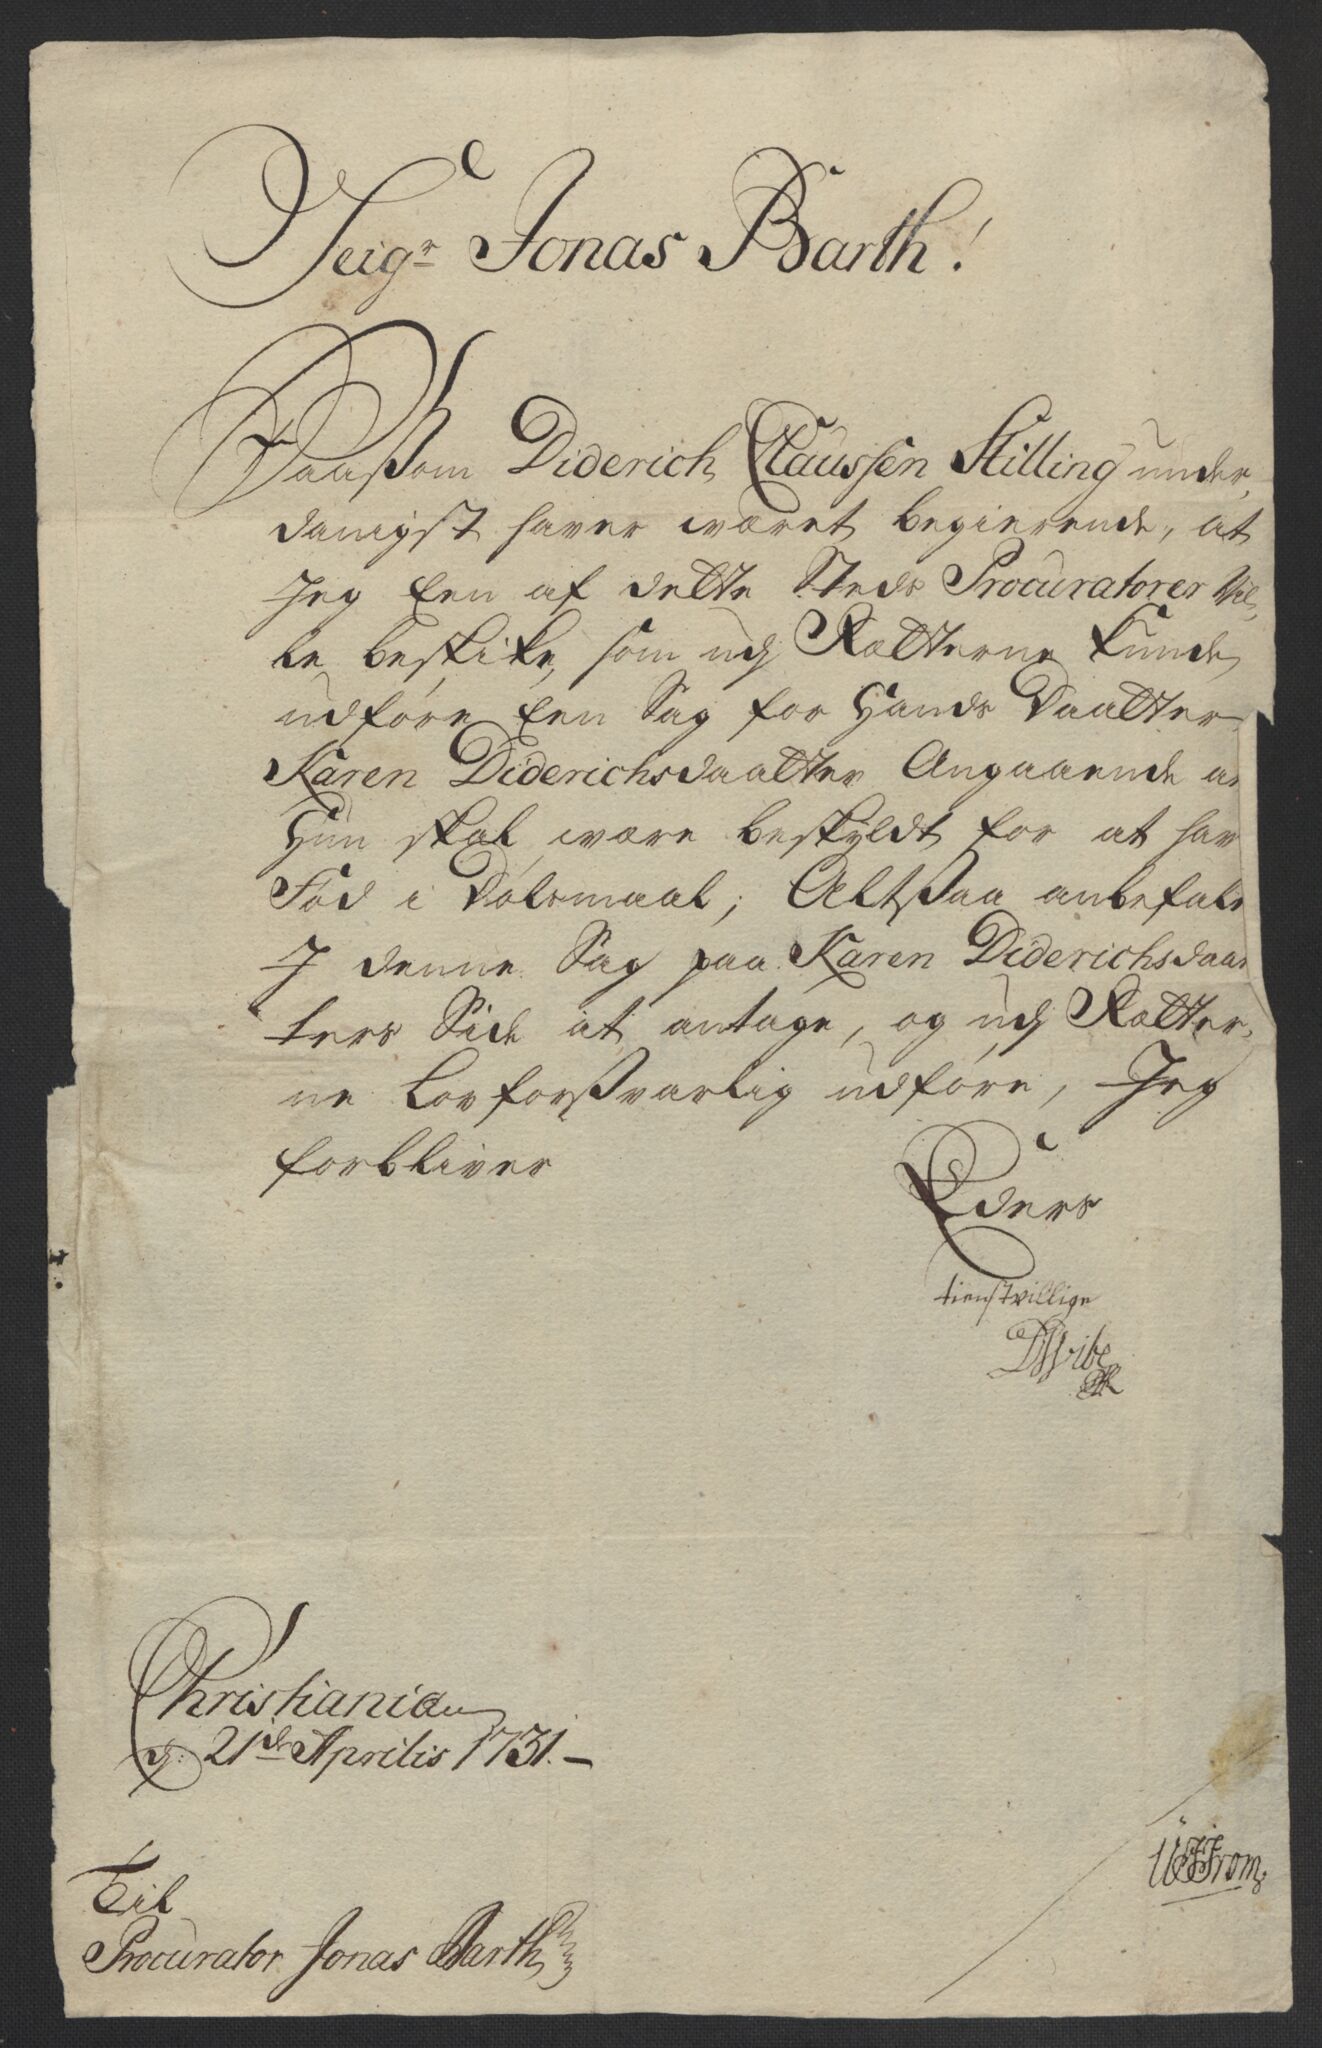 Seigr Jonas Barth!
Saasom Diderich Claussen Stilling under,
danigst haver wæret begierende, at
Jeg Een af dette Steds Procuratorer Vil,
le beskike, som udj Rætterne kunde
udføre Een Sag for Hands Daatter
Karen Diderichsdaatter Angaaende a
Hun skal være beskyldt for at hav
Fød i Dølsmaal; Altsaa anbefale
J denne Sag paa Karen Diderichsdaat
ters Side at antage, og udj Rætter,
ne Lovforsvarlig udføre, Jeg
forbliver
Eders
tienstvillige
DWibe
Christiania
d: 21de Aprilis 1731.
Til
Procurator Jonas Barth